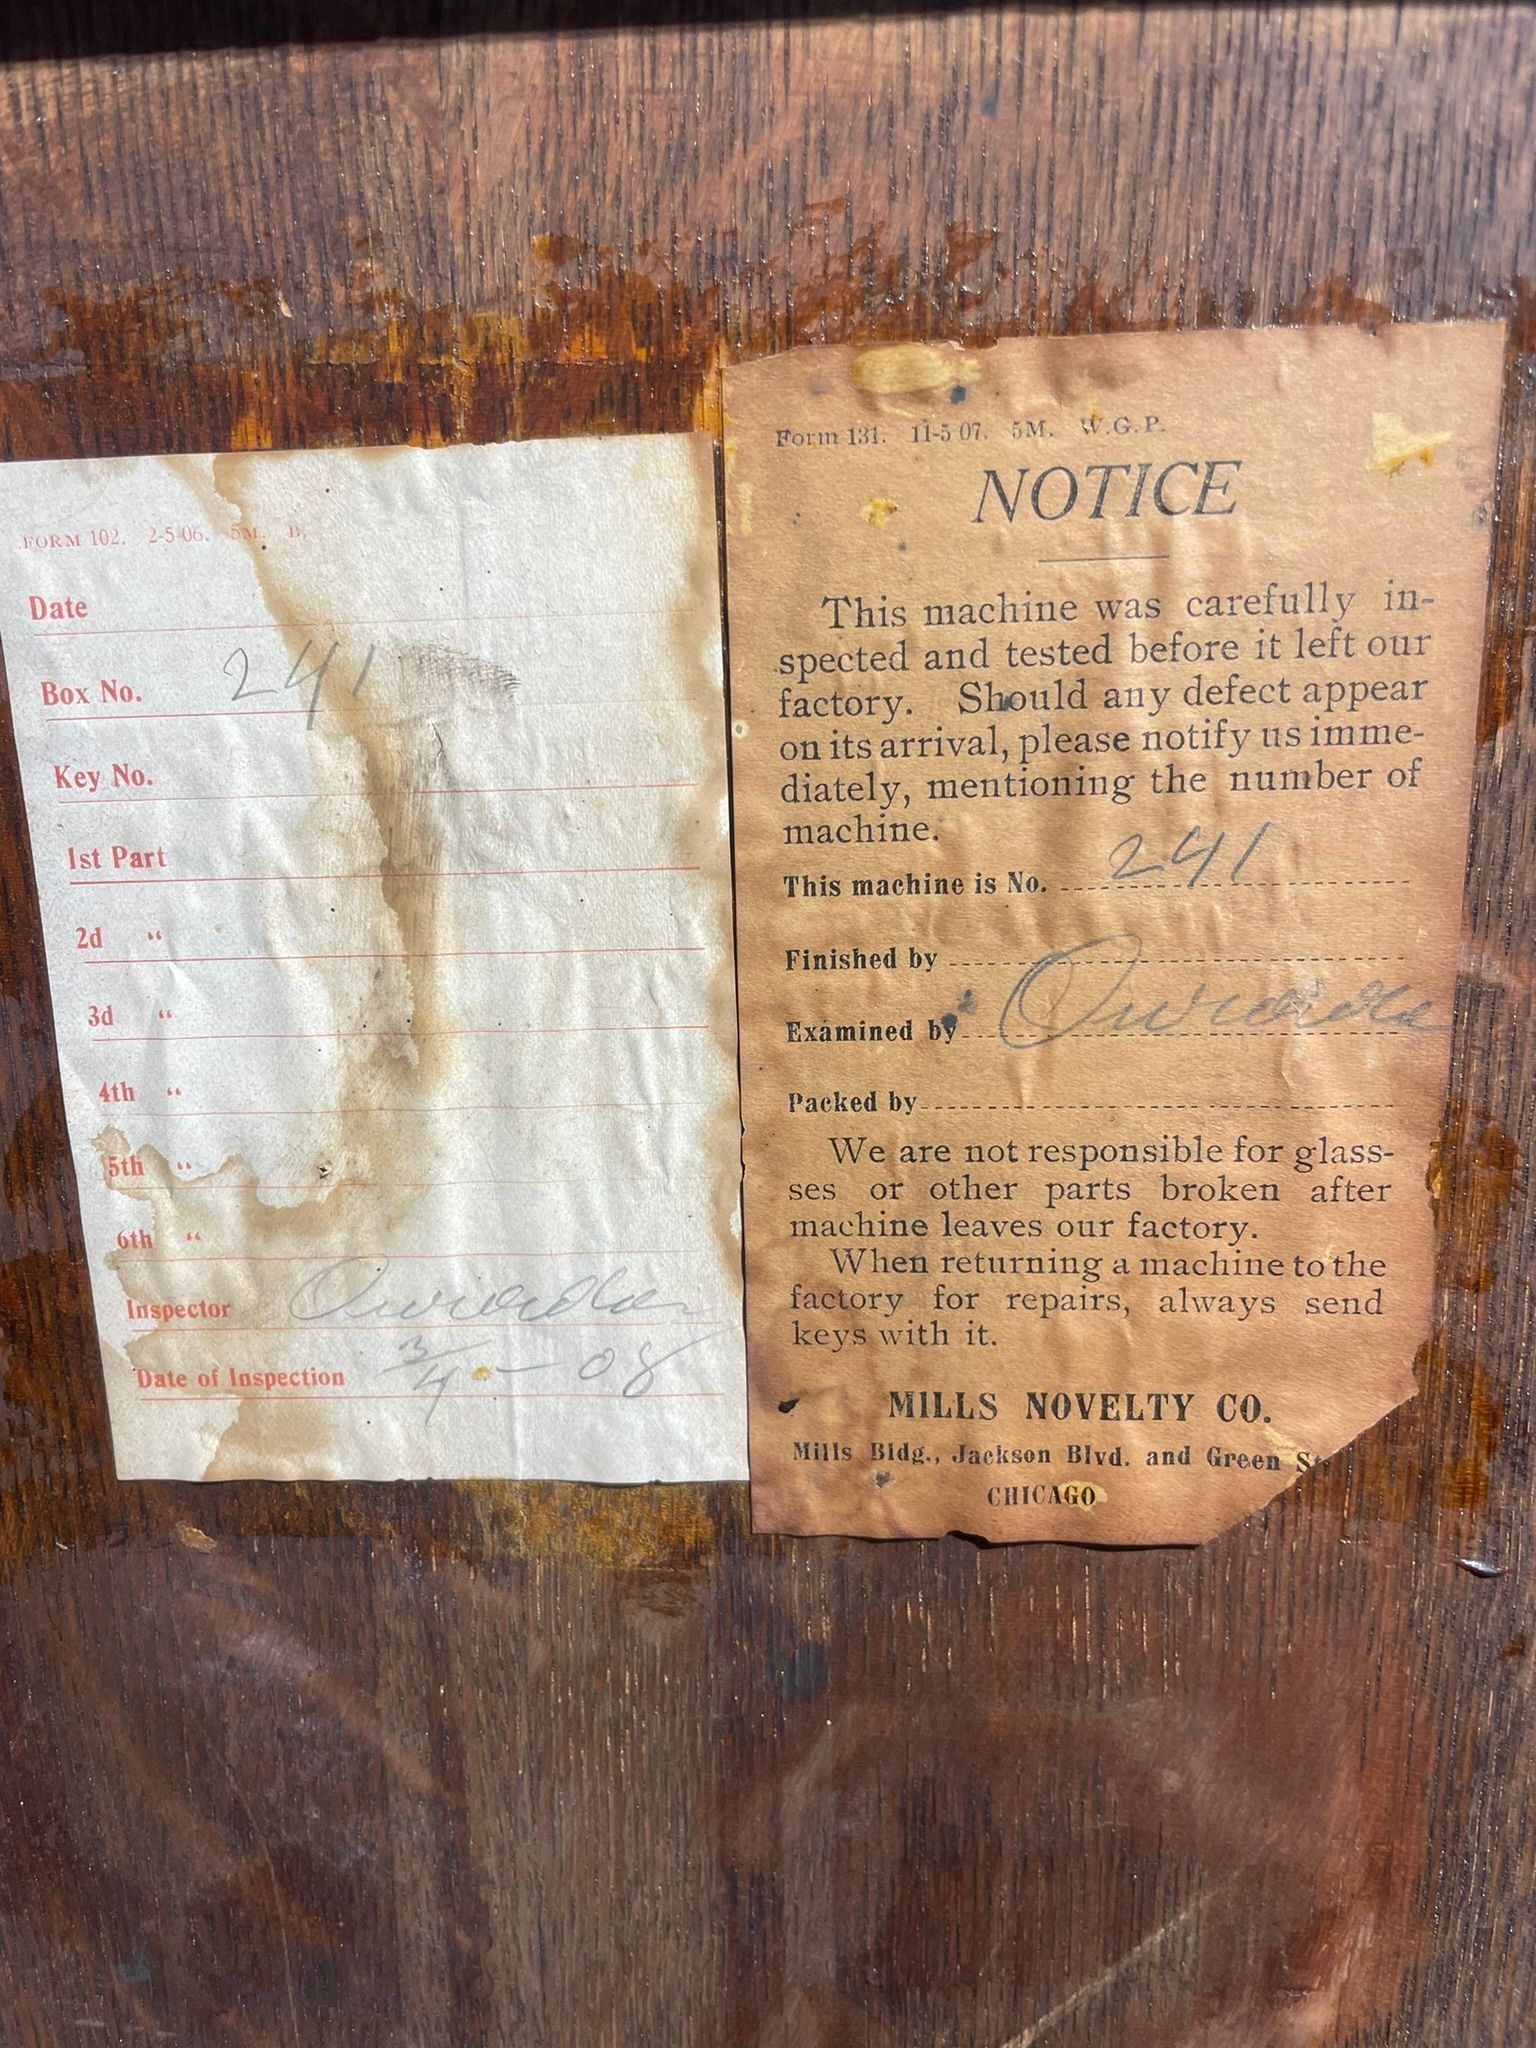 FORM 102. 2-5-06. 5M. B.
Date
Box No. 241
Key No.
1st Part
2d “
3d “
4th “
5th “
6th “
Inspector
Date of Inspection 3/4 - 08
Form 131. 11-5 07. 5M. W.G.P.
NOTICE
This machine was carefully in-
spected and tested before it left our
factory. Should any defect appear
on its arrival, please notify us imme-
diately, mentioning the number of
machine.
This machine is No. 241
Finished by
Examined by
Packed by
We are not responsible for glass-
ses or other parts broken after
machine leaves our factory.
When returning a machine to the
factory for repairs, always send
keys with it.
MILLS NOVELTY CO.
Mills Bldg., Jackson Blvd. and Green St
CHICAGO